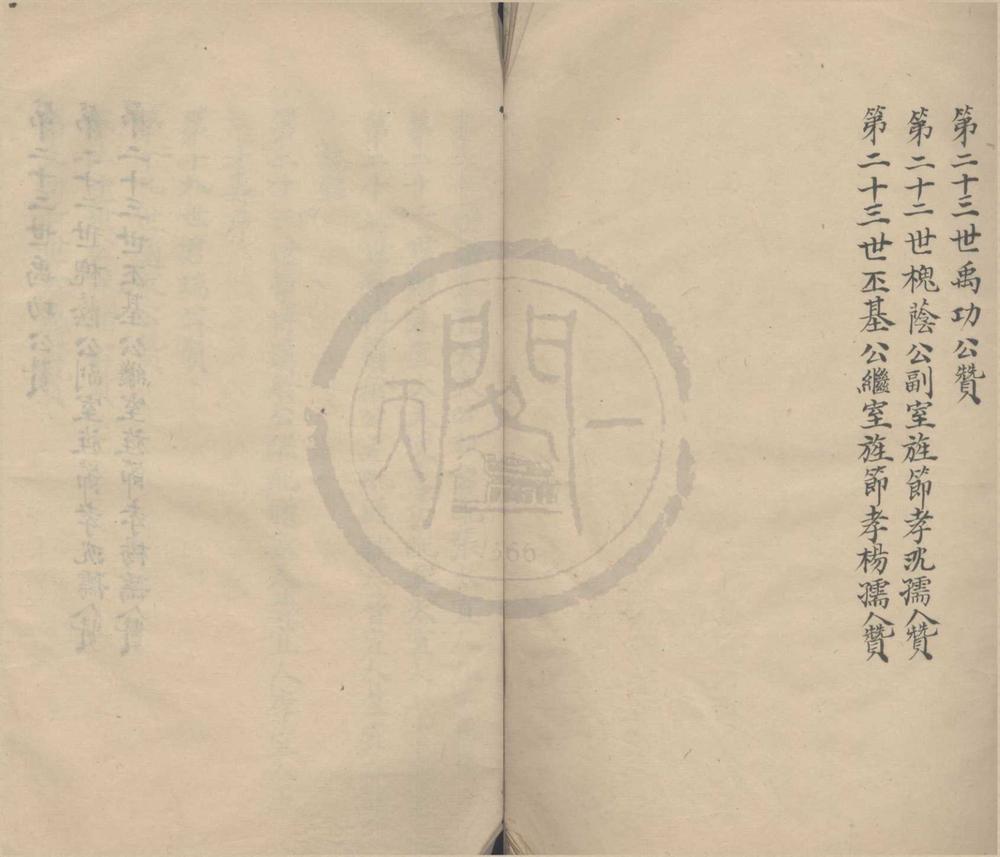 第二十三世禹功公贊
第二十二世槐蔭公副室旌節孝沈孺人贊
第二十三世丕基公繼室旌節孝楊孺人贊